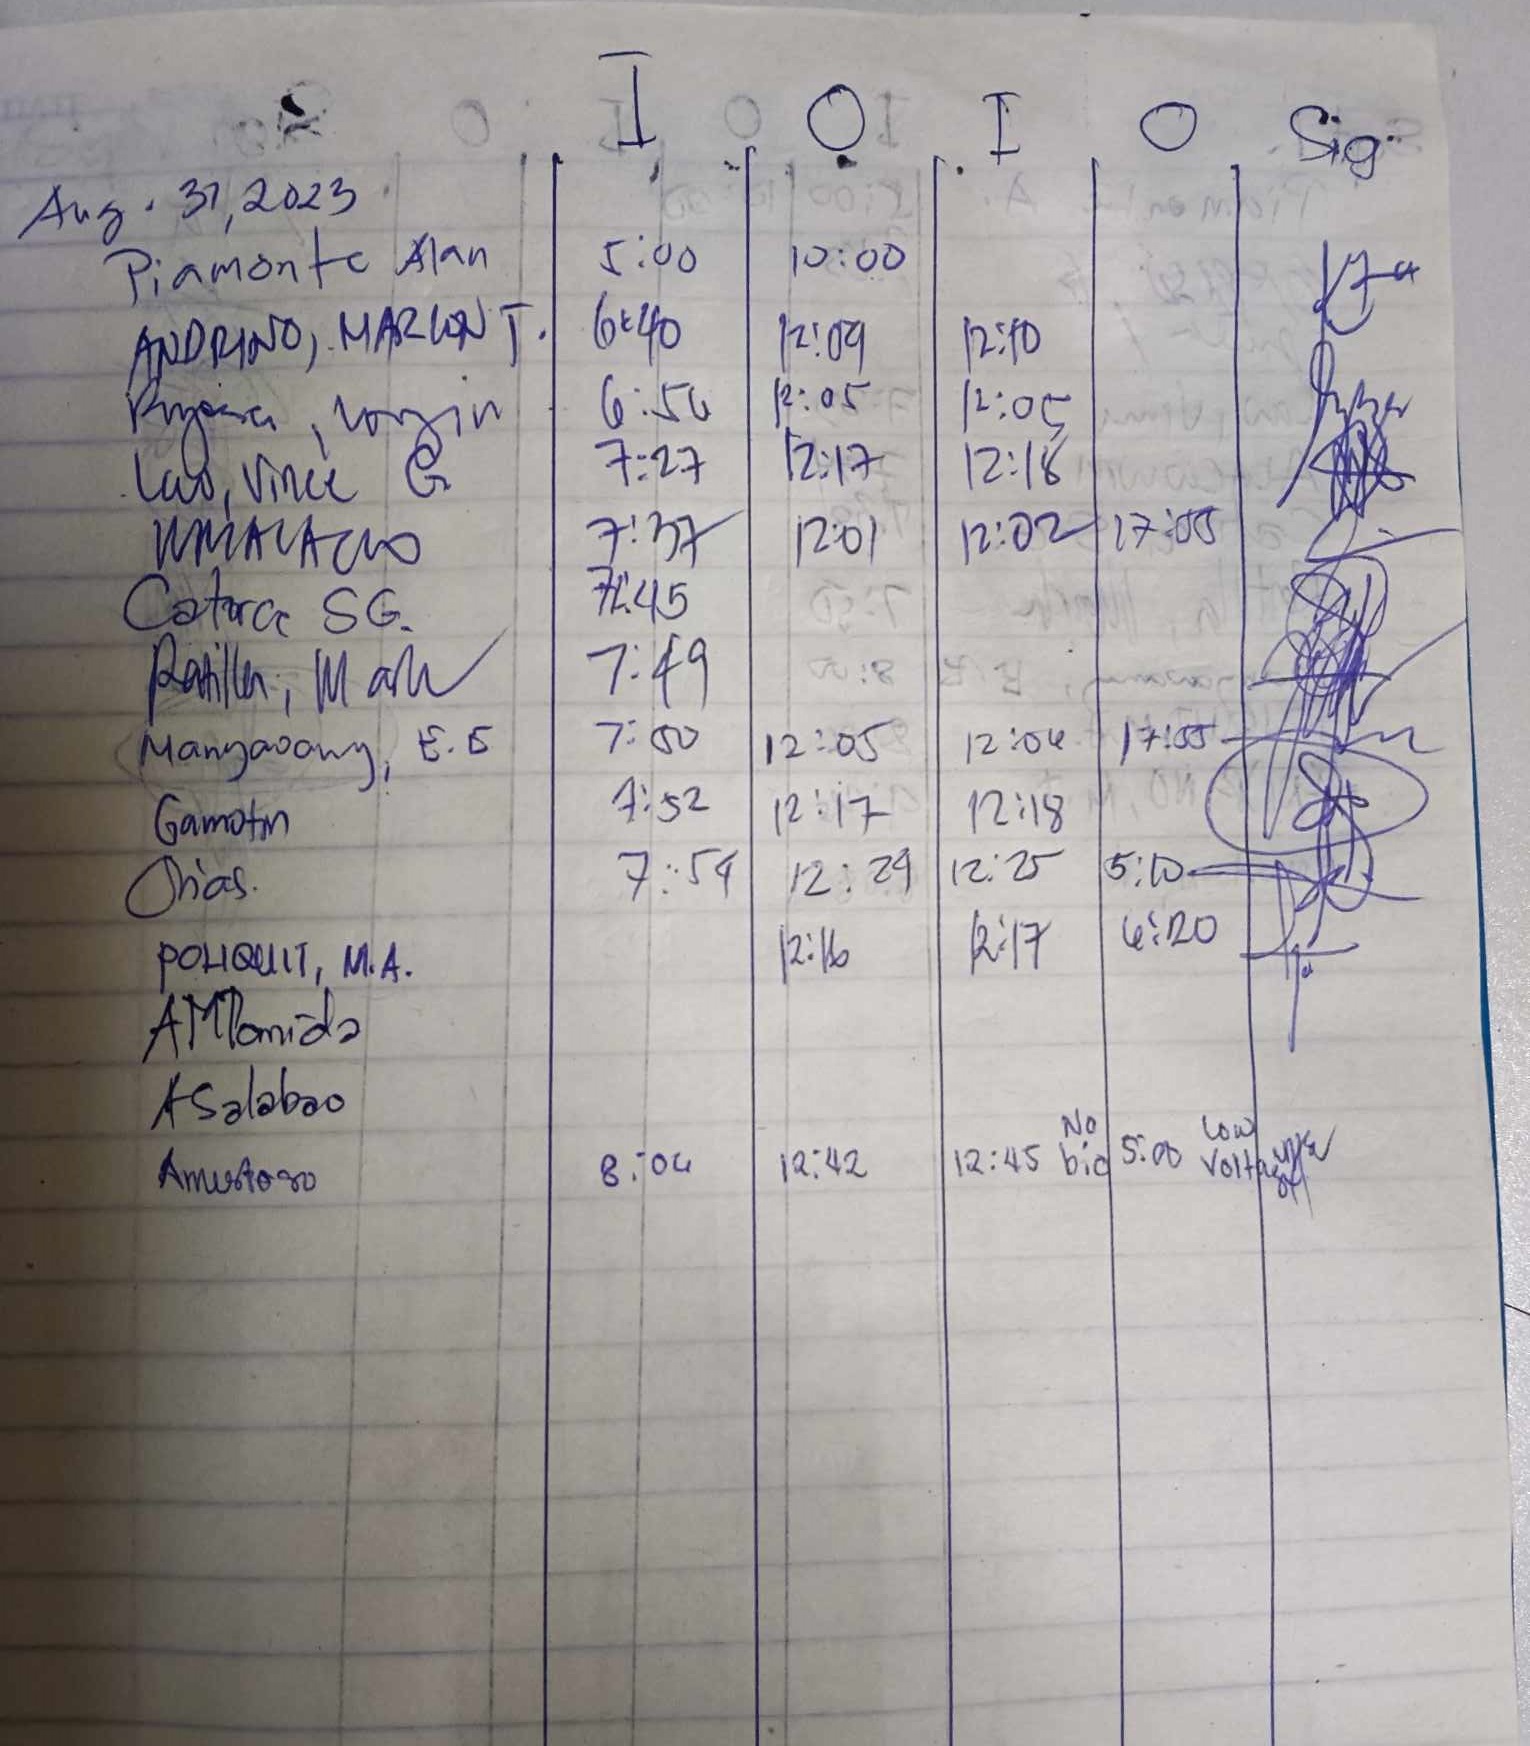 I O I O Sig.
Aug. 31, 2023
Piamonte Alan 5:00 10:00
ANDRINO, MARLON T. 6:40 12:09 12:10
6:54 12:05 12:05
Lao, Vince G 7:27 12:17 12:18
7:37 12:01 12:02 17:00
Catorce SG. 7:45
Ratilla, Mark 7:49
Mangaoang, E.E 7:50 12:05 12:06 17:00
Gamotin 7:52 12:17 12:18
Orias. 7:54 12:24 12:25 5:10
POLIQUIT, M.A. 12:16 12:17 6:20
AMPomida
ASalabao
Amistoso 8:04 12:42 12:45 No bio 5:00 Low Voltage